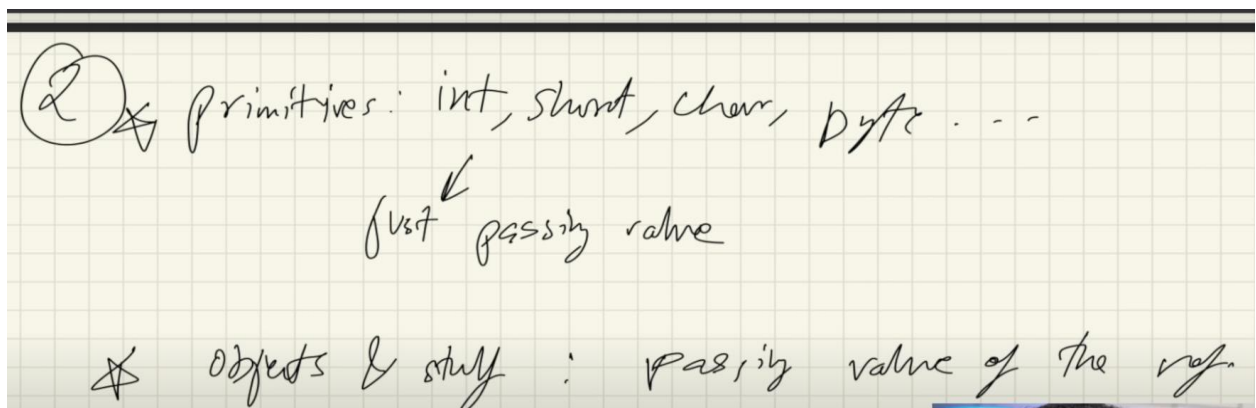 2 ☆ primitives: int, short, char, byte ...
just passing value
☆ objects & stuff : passing value of the ref.